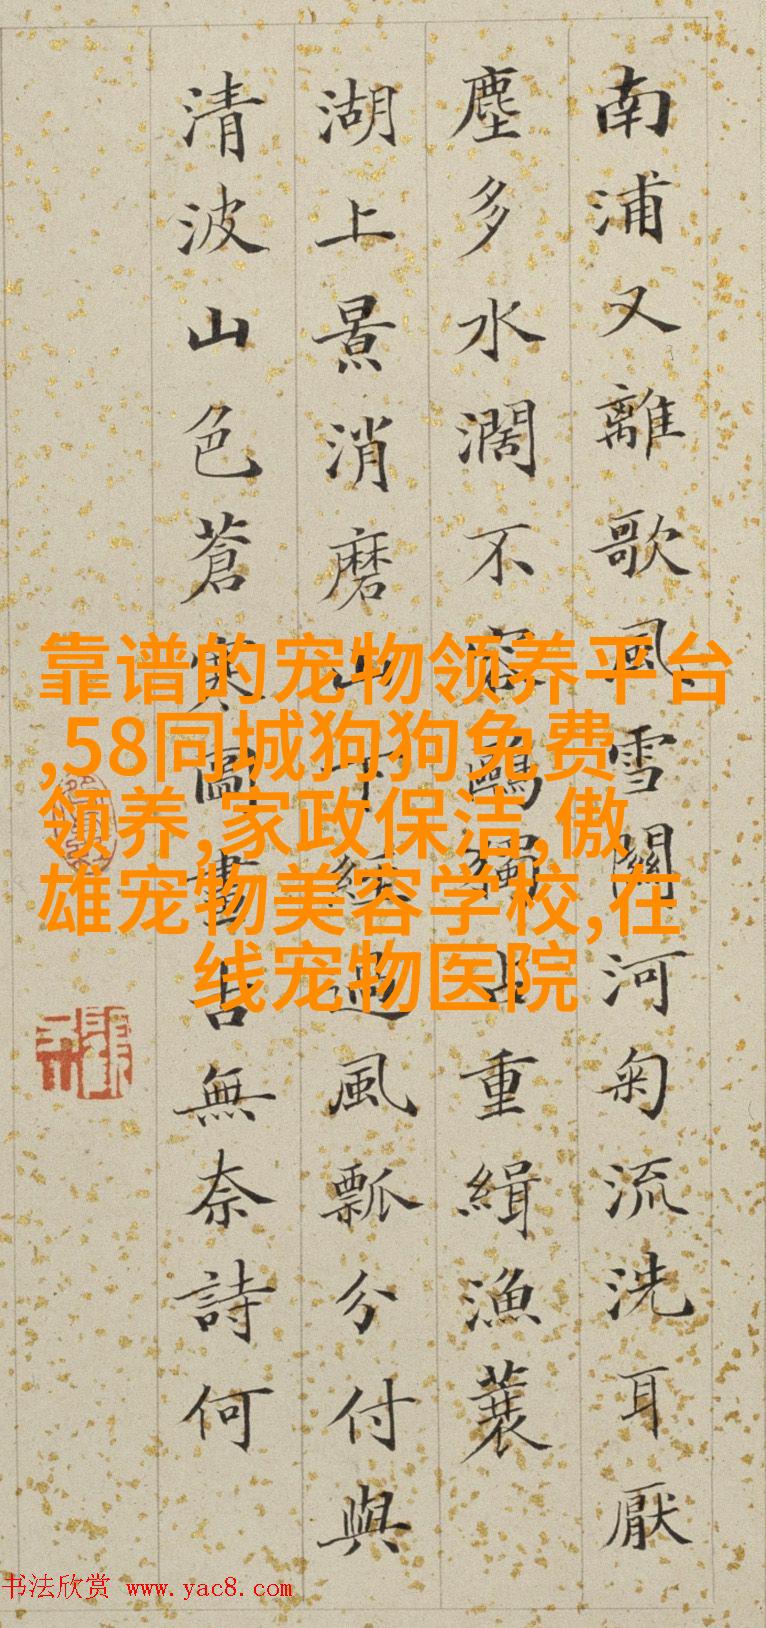 南浦又離歌風雪關河匊流洗耳厭
塵多水濶不容鷗獨占重緝漁蓑
湖上景消磨山下經過風瓢分付與
清波山色蒼寒圖畫無奈詩何
靠谱的宠物领养平台
,58同城狗狗免费
领养,家政保洁,傲
雄宠物美容学校,在
线宠物医院
书法欣赏 www.yac8.com